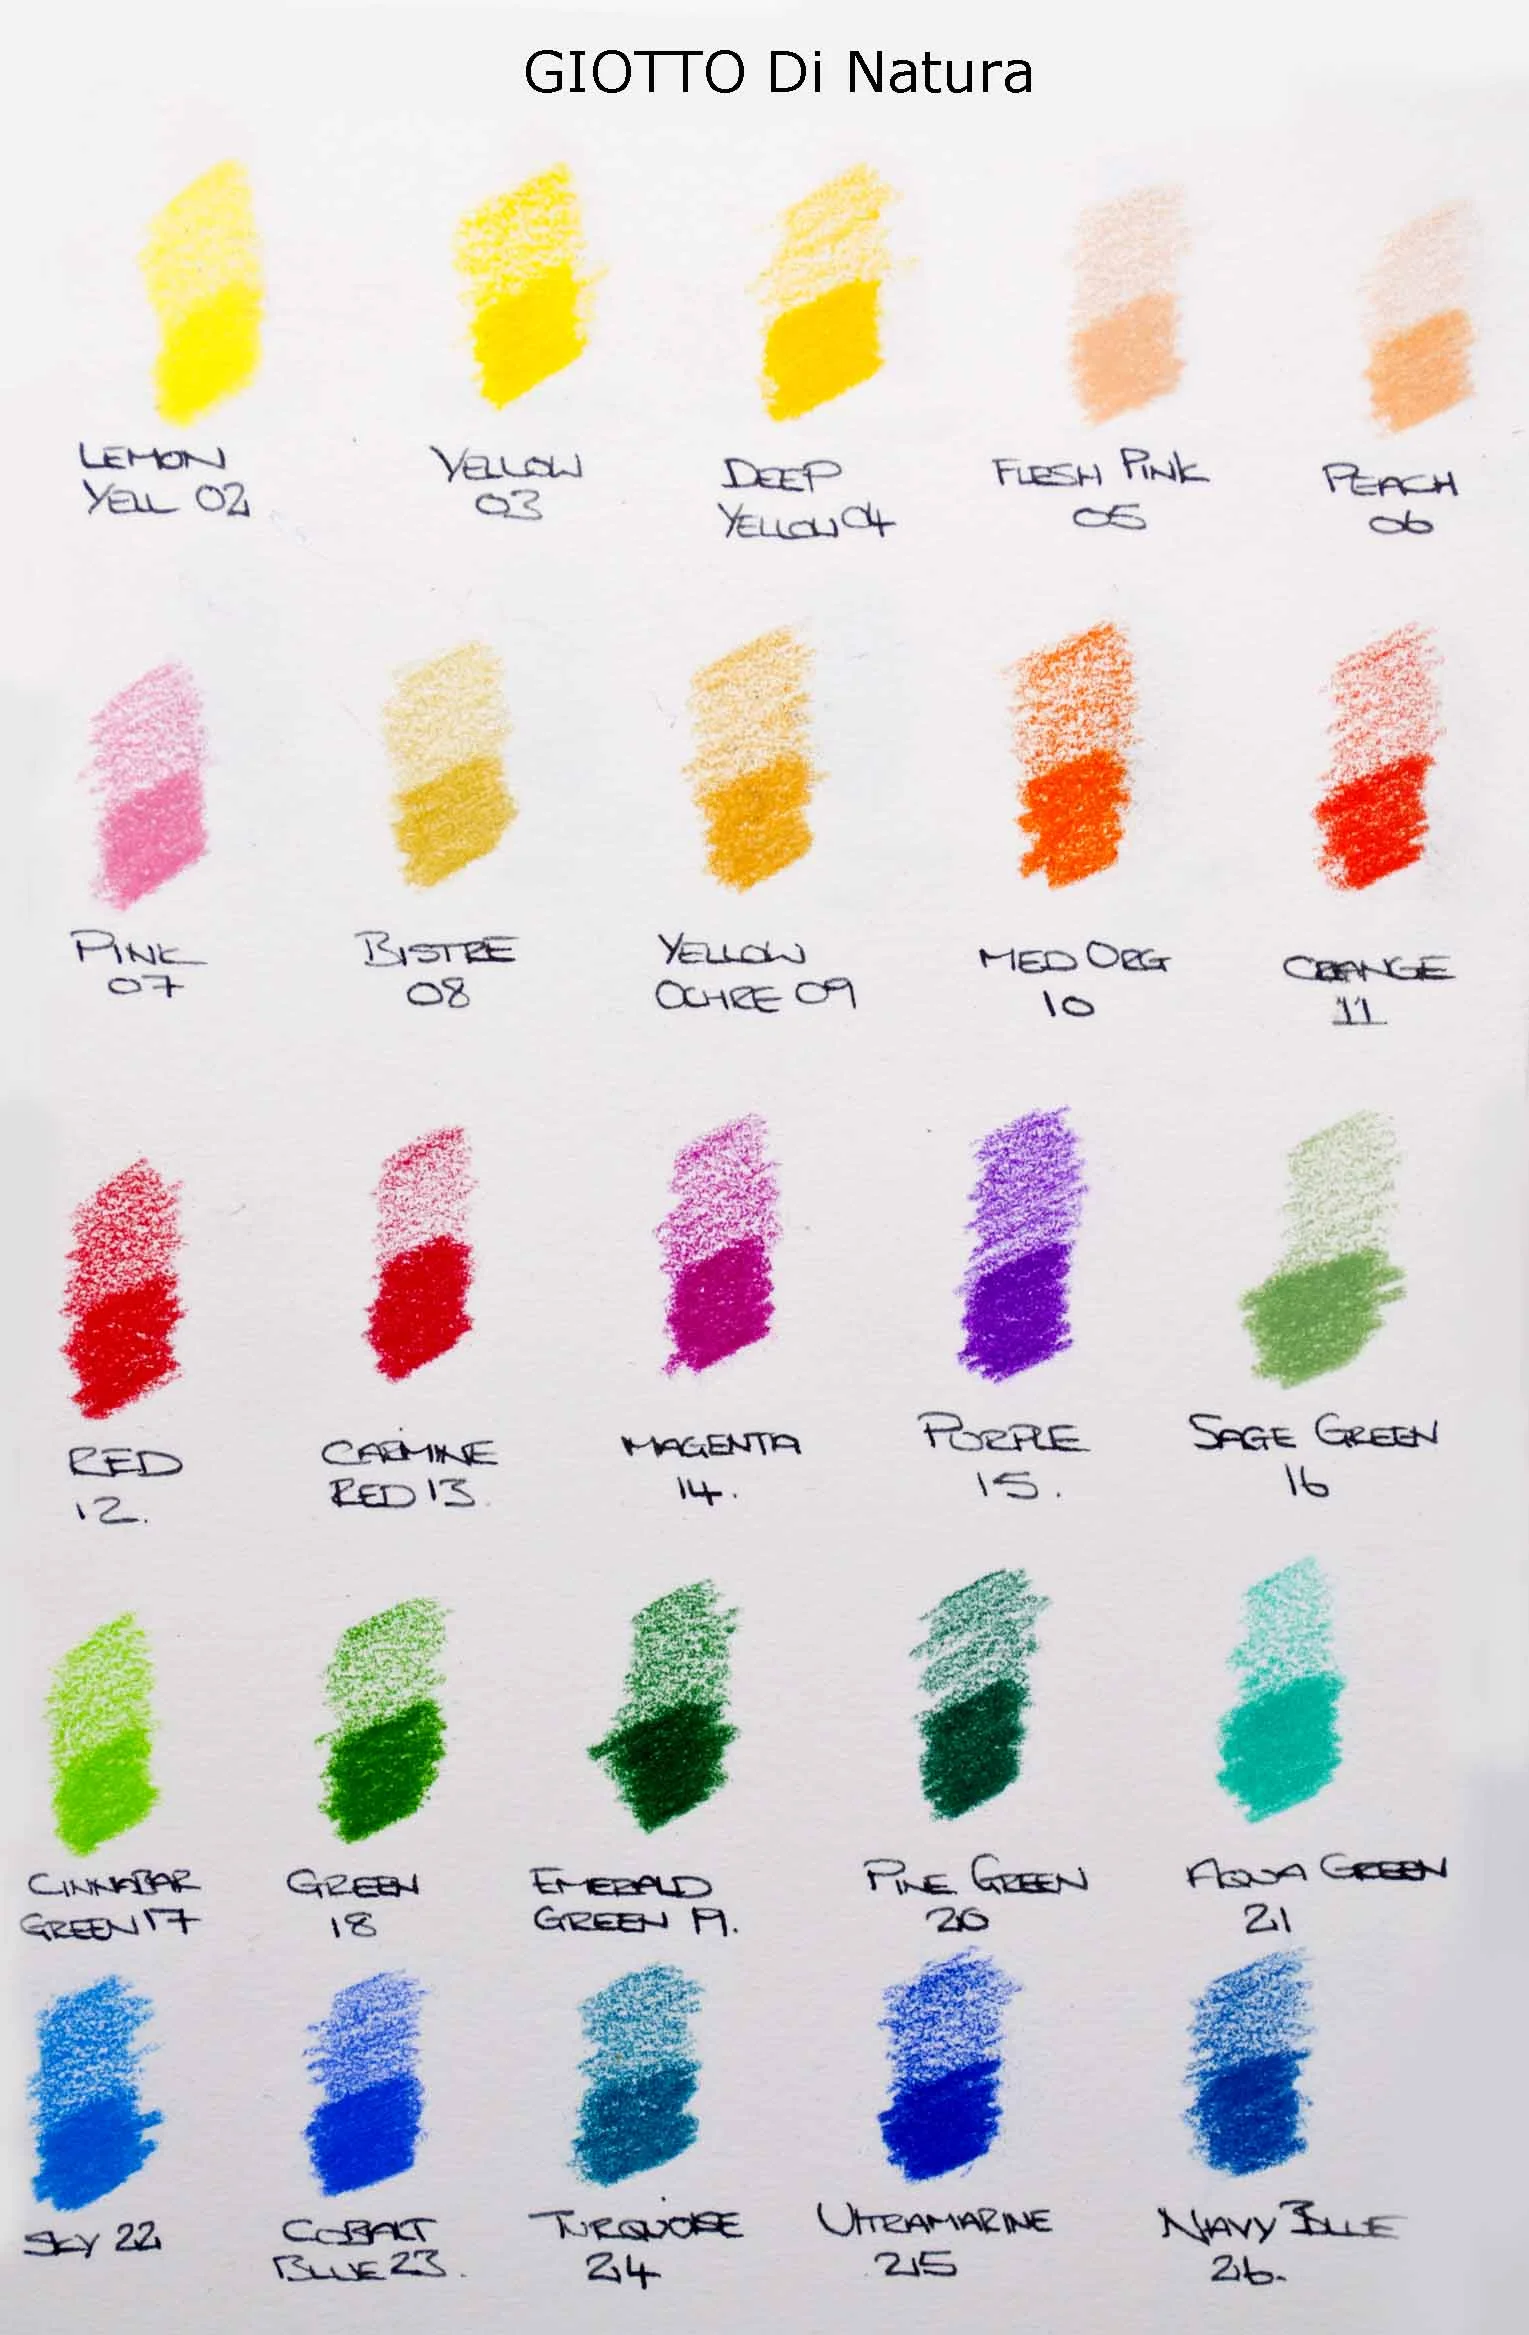 GIOTTO Di Natura
LEMON
YELL 02
YELLOW
03
DEEP
YELLOW 04
FLESH PINK
05
PEACH
06
PINK
07
BISTRE
08
YELLOW
OCHRE 09
MED ORG
10
ORANGE
11
RED
12.
CARMINE
RED 13.
MAGENTA
14.
PURPLE
15.
SAGE GREEN
16
CINNABAR
GREEN 17
GREEN
18
EMERALD
GREEN 19.
PINE GREEN
20
AQUA GREEN
21
SKY 22
COBALT
BLUE 23.
TURQUOISE
24
ULTRAMARINE
25
NAVY BLUE
26.